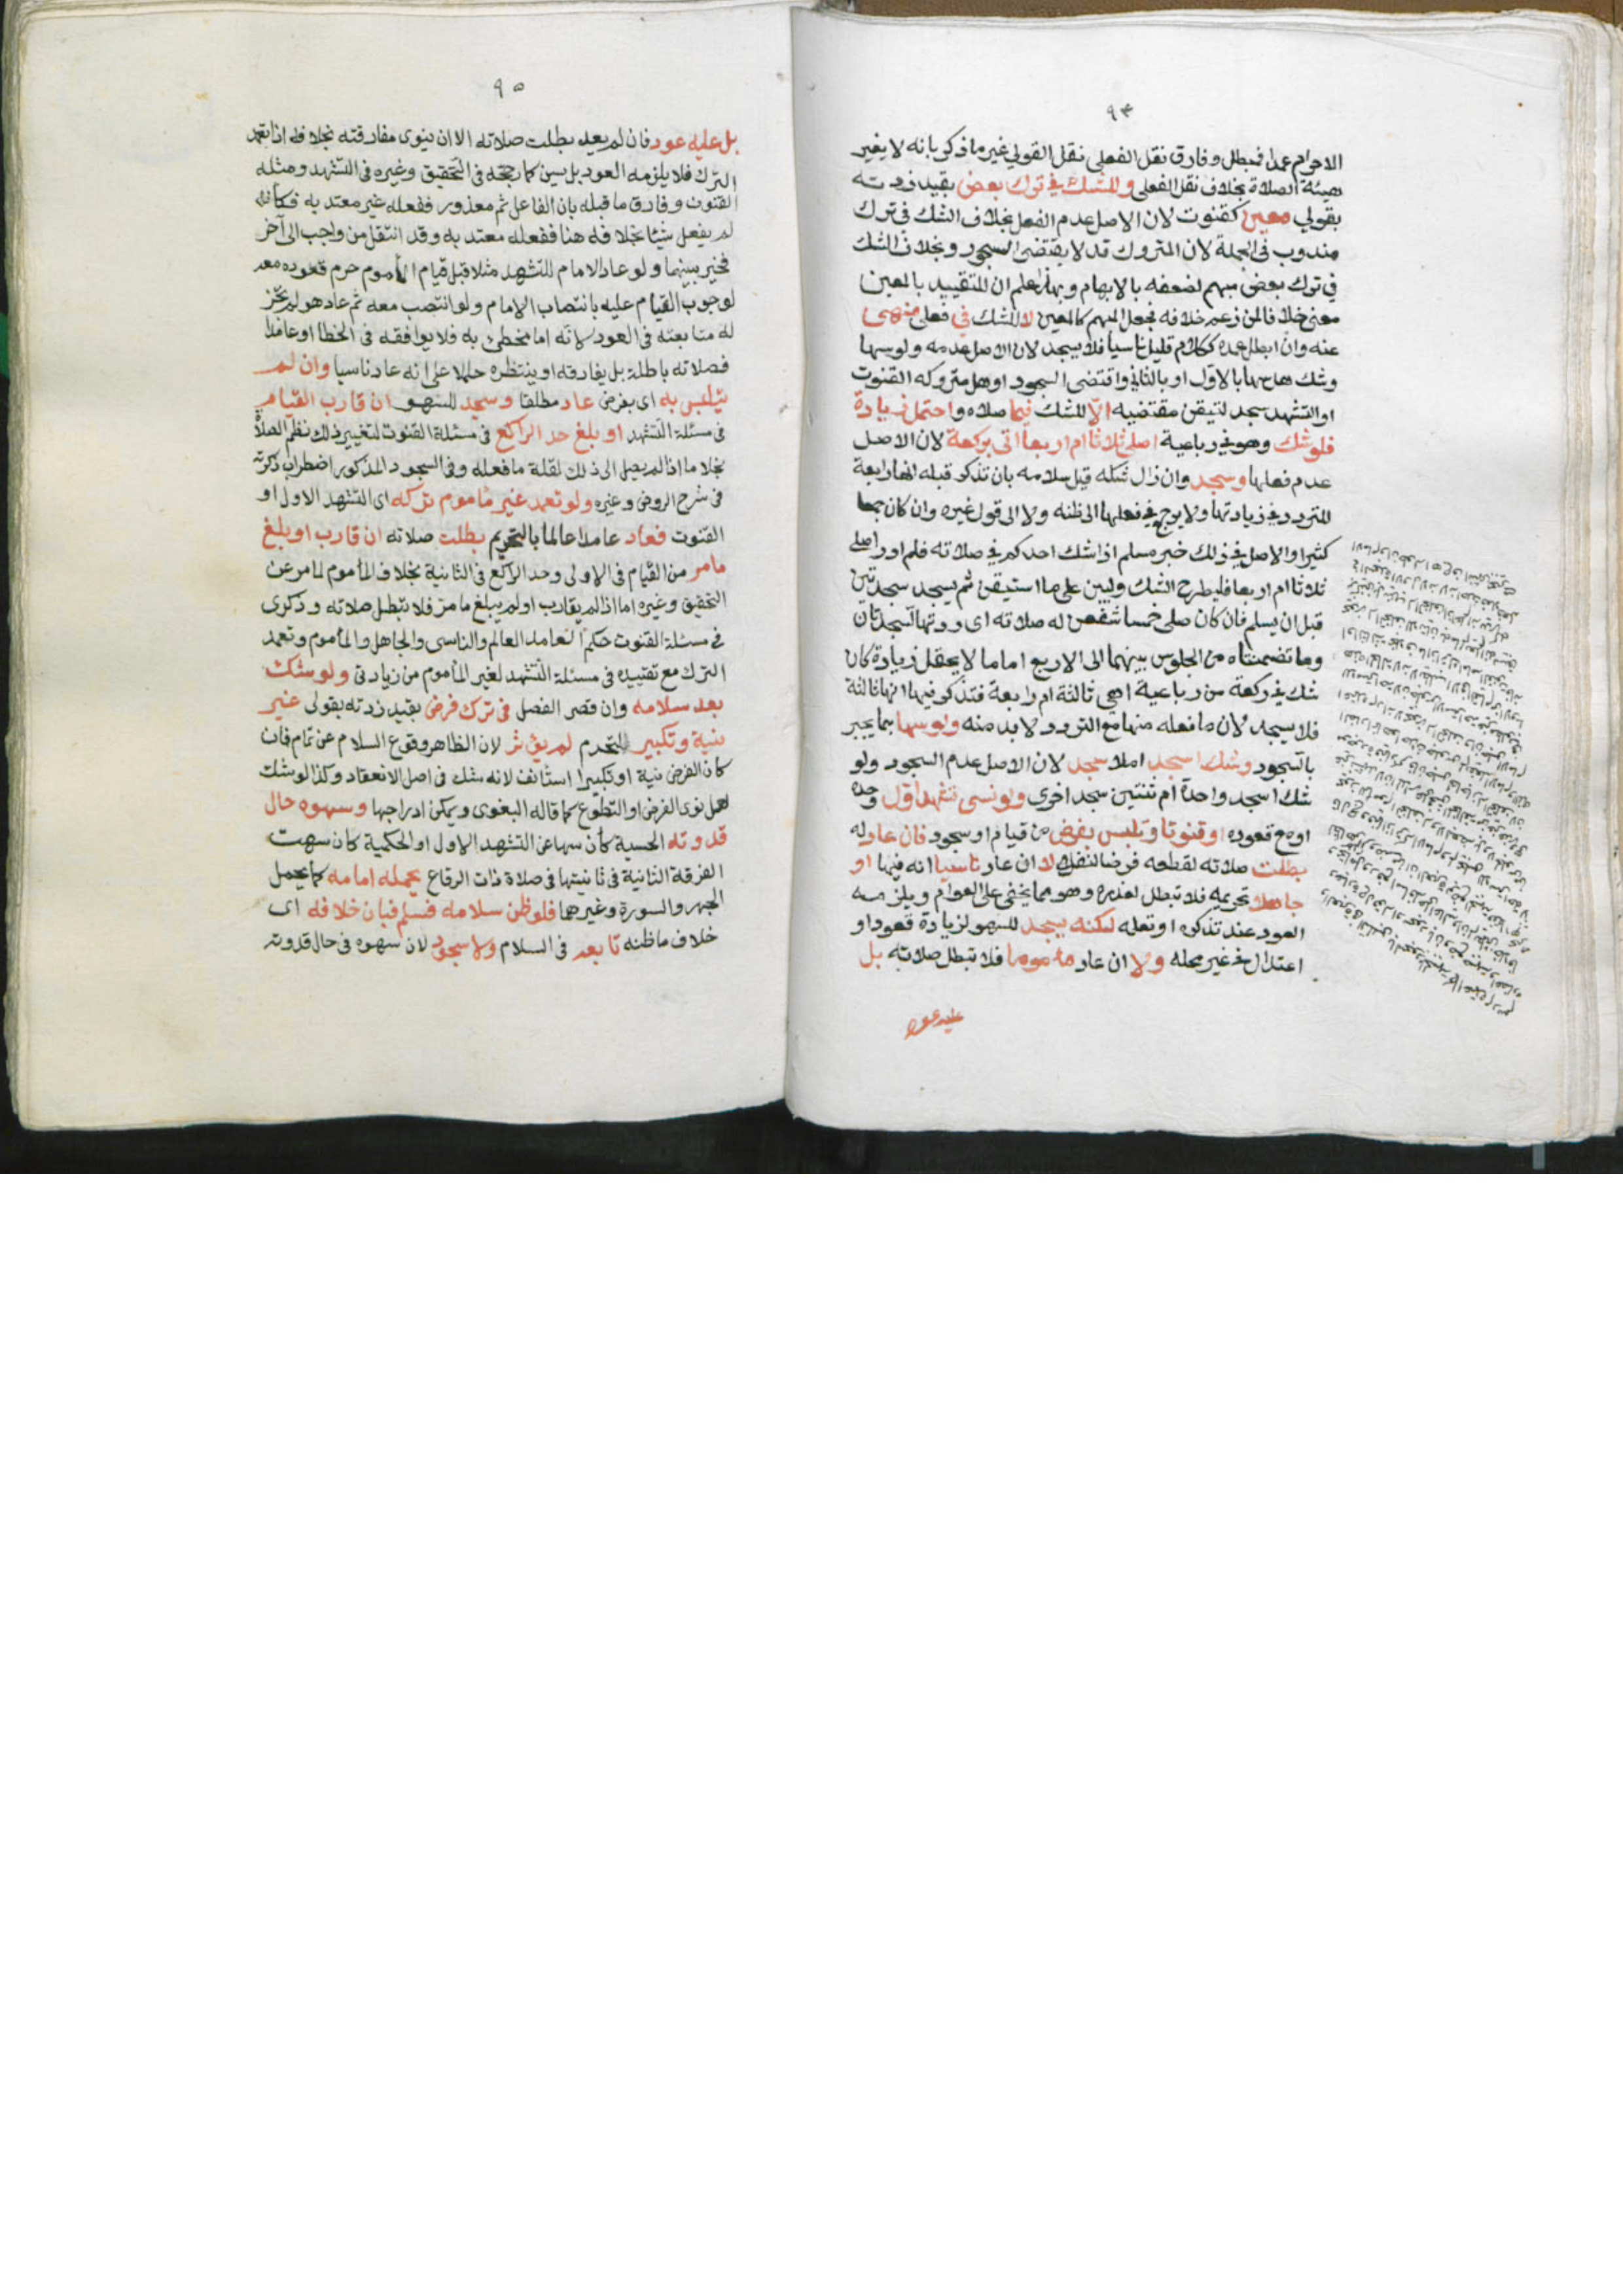 ٩٤
الاحرام عمدا فبطل وفارق نقل الفعلي نقل القولي غير ما ذكر بانه لا يغير
هيئة الصلاة بخلاف نقل الفعلي وللشك في ترك بعض بقيد زدته
بقولي معين كقنوت لان الاصل عدم الفعل بخلاف الشك في ترك
مندوب في الجملة لان المتروك قد لا يقتضي السجود وبخلاف الشك
في ترك بعض مبهم لضعفه بالابهام وبهذا علم ان للتقييد بالمعين
معنى خلافا لمن زعم خلافه فجعل المبهم كالمعين لا للشك في فعل منهي
عنه وان ابطل عمده ككلام قليل ناسيا فلا يسجد لان الاصل عدمه ولو سها
وشك هل سها بالاول او بالثاني واقتضى السجود او هل متروكه القنوت
او التشهد سجد لتيقن مقتضيه الا للشك فيما صلاه واحتمل زيادة
فلو شك وهو في رباعية اصلى ثلاثا ام اربعا اتى بركعة لان الاصل
عدم فعلها وسجد وان زال شكه قبل سلامه بان تذكر قبله انها رابعة
للتردد في زيادتها ولا يرجع في فعلها الى ظنه ولا الى قول غيره وان كان جمعا
كثيرا والاصل في ذلك خبر مسلم اذا شك احدكم في صلاته فلم يدر اصلى
ثلاثا ام اربعا فليطرح الشك وليبن على ما استيقن ثم يسجد سجدتين
قبل ان يسلم فان كان صلى خمسا شفعن له صلاته اى ردتها السجدتان
وما تضمنتاه من الجلوس بينهما الى الاربع اما ما لا يحتمل زيادة كان
شك في ركعة من رباعية اهي ثالثة ام رابعة فتذكر فيها انها ثالثة
فلا يسجد لان ما فعله منها مع التردد لا بد منه ولو سها بما يجبر
بالسجود وشك اسجد ام لا سجد لان الاصل عدم السجود ولو
شك اسجد واحدة ام ثنتين سجد اخرى ولو نسي تشهدا اول وحده
او مع قعوده او قنوتا وتلبس بفرض من قيام او سجود فان عاد له
بطلت صلاته لقطعه فرضا لنفل لا ان عاد ناسيا انه فيها او
جاهلا تحريمه فلا تبطل لعذره وهو مما يخفى على العوام ويلزمه
العود عند تذكره او تعلمه لكنه يسجد للسهو لزيادة قعود او
اعتدال في غير محله ولا ان عاد ماموما فلا تبطل صلاته بل
عليه عود
٩٥
بل عليه عود فان لم يعد بطلت صلاته الا ان ينوى مفارقته بخلافه اذا تعمد
الترك فلا يلزمه العود بل يسن كما رجحه في التحقيق وغيره في التشهد ومثله
القنوت وفارق ما قبله بان الفاعل ثم معذور ففعله غير معتد به فكأنه
لم يفعل شيئا بخلافه هنا ففعله معتد به وقد انتقل من واجب الى آخر
فخير بينهما ولو عاد الامام للتشهد مثلا قبل قيام المأموم حرم قعوده معه
لوجوب القيام عليه بانتصاب الامام ولو انتصب معه ثم عاد هو لم يجز
له متابعته في العود لانه اما مخطئ به فلا يوافقه في الخطا او عامد
فصلاته باطلة بل يفارقه او ينتظره حملا على انه عاد ناسيا وان لم
يتلبس به اى بفرض عاد مطلقا وسجد للسهو ان قارب القيام
في مسئلة التشهد او بلغ حد الراكع في مسئلة القنوت لتغيير ذلك نظم الصلاة
بخلاف ما اذا لم يصل الى ذلك لقلة ما فعله وفي السجود المذكور اضطراب ذكرته
في شرح الروض وغيره ولو تعمد غير ماموم تركه اى التشهد الاول او
القنوت فعاد عامدا عالما بالتحريم بطلت صلاته ان قارب او بلغ
مامر من القيام في الاولى وحد الراكع في الثانية بخلاف المأموم لما مر عن
التحقيق وغيره اما اذا لم يقارب او لم يبلغ ما مر فلا تبطل صلاته وذكرى
في مسئلة القنوت حكم العامد العالم والناسى والجاهل والمأموم وتعمد
الترك مع تقييده في مسئلة التشهد لغير المأموم من زيادتى ولو شك
بعد سلامه وان قصر الفصل في ترك فرض بقيد زدته بقولى غير
نية وتكبير للتحرم لم يؤثر لان الظاهر وقوع السلام عن تمام فان
كان الفرض نية او تكبيرا استأنف لانه شك في اصل الانعقاد وكذا لو شك
هل نوى الفرض او التطوع كما قاله البغوى ويمكن ادراجها وسهوه حال
قدوته الحسية كأن سها عن التشهد الاول او الحكمية كان سهت
الفرقة الثانية في ثانيتها في صلاة ذات الرقاع يحمله امامه كما يحمل
الجهر والسورة وغيرهما فلو ظن سلامه فسلم فبان خلافه اى
خلاف ما ظنه تابعه في السلام ولا سجود لان سهوه في حال قدوته